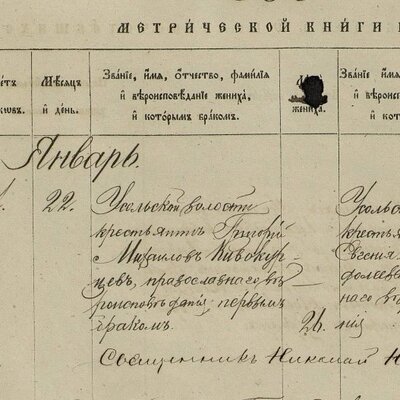 МЕТРИЧЕСКОЙ КНИГИ
Мѣсяцъ и день.
Званіе, имя, отчество, фамилія и вѣроисповѣданіе жениха, и которымъ бракомъ.
жениха.
Званіе, имя
и вѣроиспо
и кот
Январь.
22.
Усольской волости
крестьянинъ
Михаиловъ
православнаго вѣ
роисповѣданія, первымъ
бракомъ.
26.
Усольс
крестья
наго вѣ
нія
Священникъ Николай